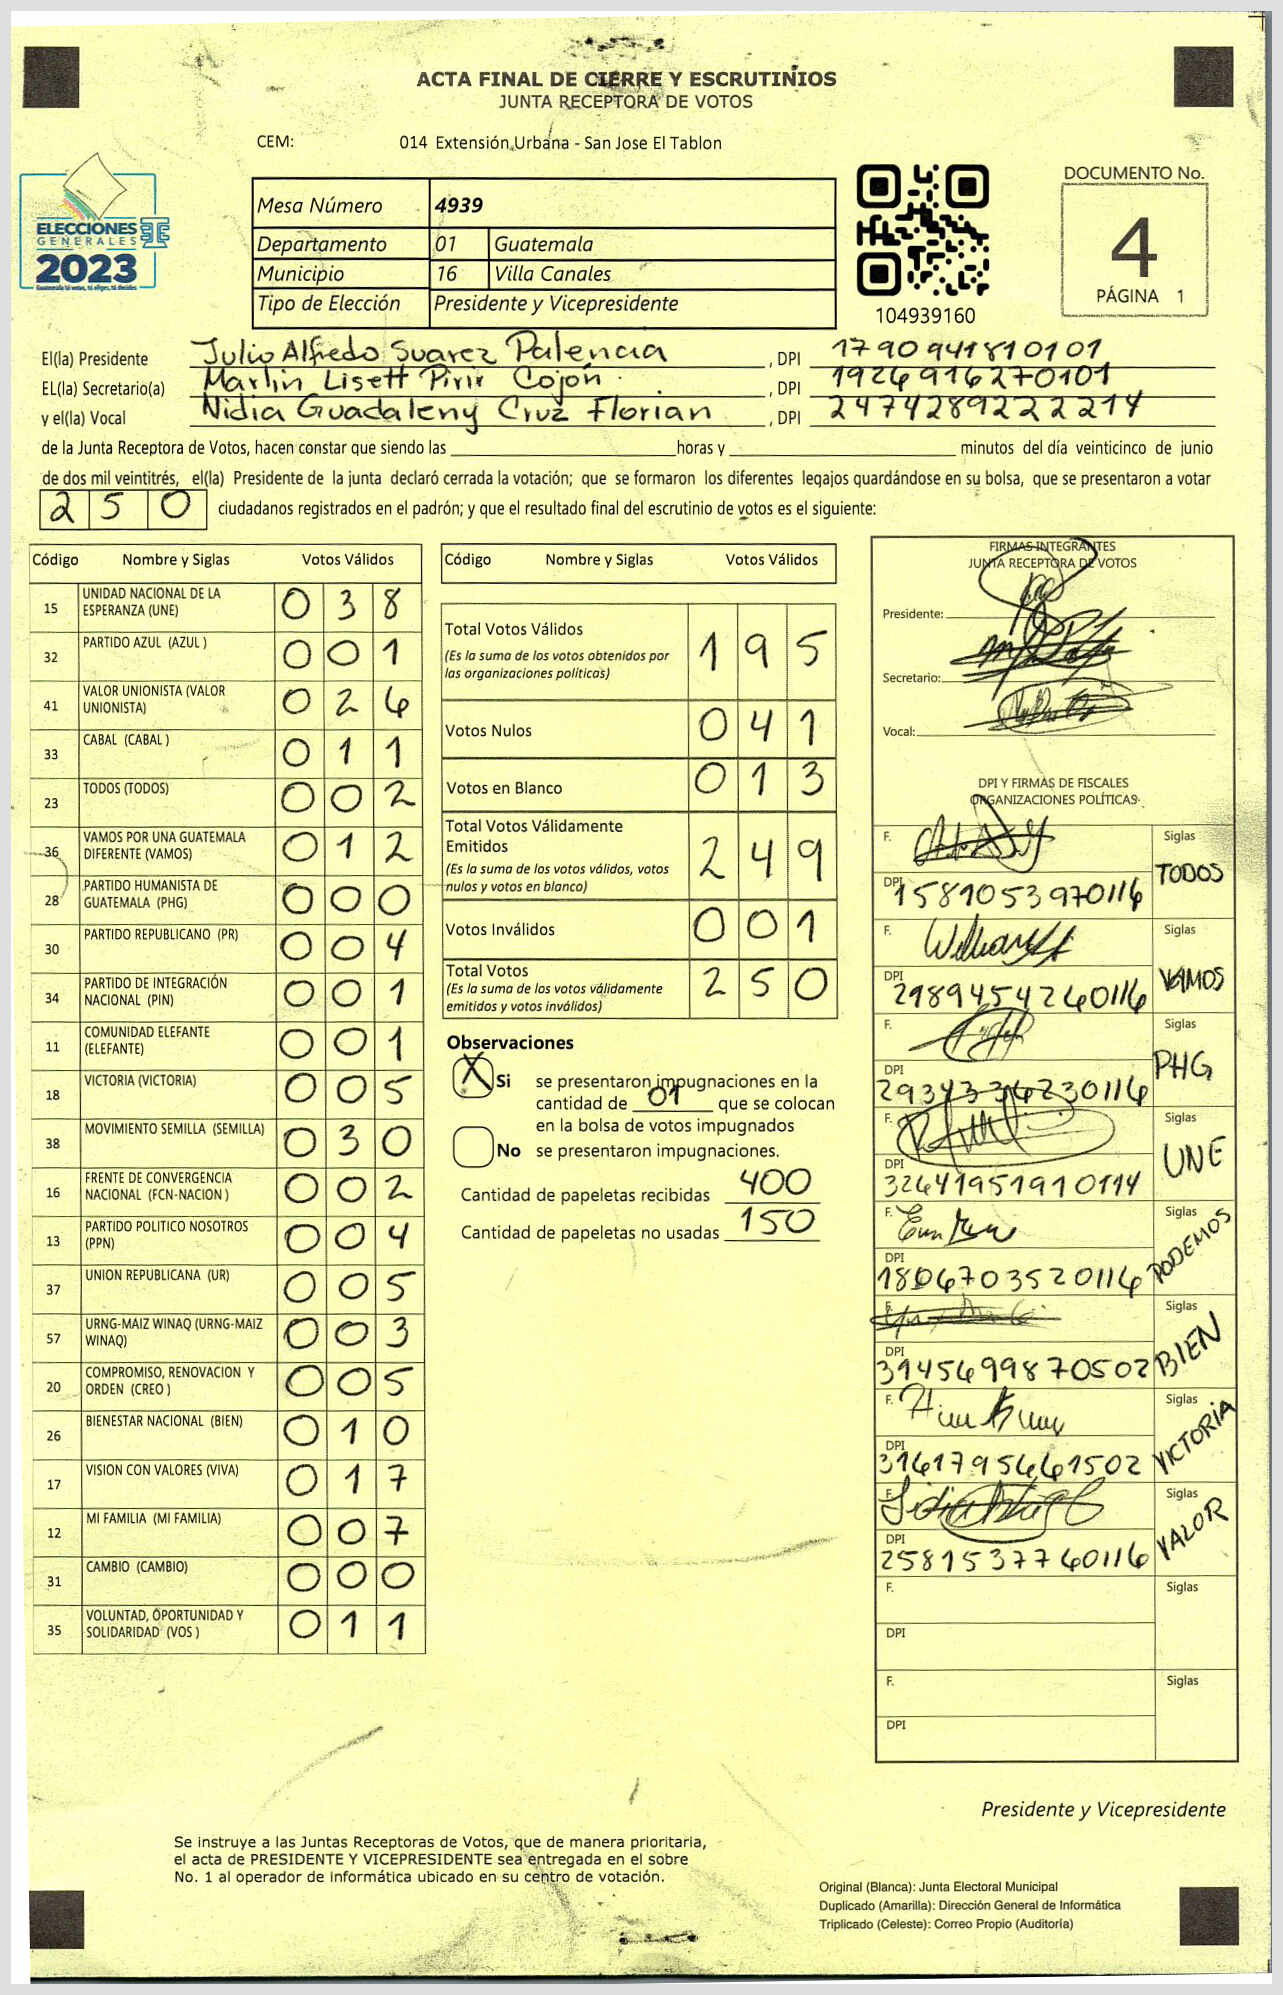 ACTA FINAL DE CIERRE Y ESCRUTINIOS
JUNTA RECEPTORA DE VOTOS
CEM: 014 Extensión Urbana - San Jose El Tablon
ELECCIONES
GENERALES
2023
Guatemala tú votas, tú eliges, tú decides
Mesa Número 4939
Departamento 01 Guatemala
Municipio 16 Villa Canales
Tipo de Elección Presidente y Vicepresidente
104939160
DOCUMENTO No.
4
PÁGINA 1
El(la) Presidente Julio Alfredo Suarez Palencia , DPI 1790941810101
EL(la) Secretario(a) Marlin Lisett Pirir Cojón , DPI 1926916270101
y el(la) Vocal Nidia Guadaleny Cruz Florian , DPI 2474289222214
de la Junta Receptora de Votos, hacen constar que siendo las horas y minutos del día veinticinco de junio
de dos mil veintitrés, el(la) Presidente de la junta declaró cerrada la votación; que se formaron los diferentes legajos guardándose en su bolsa, que se presentaron a votar
250 ciudadanos registrados en el padrón; y que el resultado final del escrutinio de votos es el siguiente:
Código Nombre y Siglas Votos Válidos
15 UNIDAD NACIONAL DE LA ESPERANZA (UNE) 038
32 PARTIDO AZUL (AZUL ) 001
41 VALOR UNIONISTA (VALOR UNIONISTA) 026
33 CABAL (CABAL ) 011
23 TODOS (TODOS) 002
36 VAMOS POR UNA GUATEMALA DIFERENTE (VAMOS) 012
28 PARTIDO HUMANISTA DE GUATEMALA (PHG) 000
30 PARTIDO REPUBLICANO (PR) 004
34 PARTIDO DE INTEGRACIÓN NACIONAL (PIN) 001
11 COMUNIDAD ELEFANTE (ELEFANTE) 001
18 VICTORIA (VICTORIA) 005
38 MOVIMIENTO SEMILLA (SEMILLA) 030
16 FRENTE DE CONVERGENCIA NACIONAL (FCN-NACION ) 002
13 PARTIDO POLITICO NOSOTROS (PPN) 004
37 UNION REPUBLICANA (UR) 005
57 URNG-MAIZ WINAQ (URNG-MAIZ WINAQ) 003
20 COMPROMISO, RENOVACION Y ORDEN (CREO ) 005
26 BIENESTAR NACIONAL (BIEN) 010
17 VISION CON VALORES (VIVA) 017
12 MI FAMILIA (MI FAMILIA) 007
31 CAMBIO (CAMBIO) 000
35 VOLUNTAD, OPORTUNIDAD Y SOLIDARIDAD (VOS ) 011
Código Nombre y Siglas Votos Válidos
Total Votos Válidos 195
(Es la suma de los votos obtenidos por
las organizaciones políticas)
Votos Nulos 041
Votos en Blanco 013
Total Votos Válidamente
Emitidos 249
(Es la suma de los votos válidos, votos
nulos y votos en blanco)
Votos Inválidos 001
Total Votos 250
(Es la suma de los votos válidamente
emitidos y votos inválidos)
Observaciones
X Si se presentaron impugnaciones en la
cantidad de 01 que se colocan
en la bolsa de votos impugnados
No se presentaron impugnaciones.
Cantidad de papeletas recibidas 400
Cantidad de papeletas no usadas 150
FIRMAS INTEGRANTES
JUNTA RECEPTORA DE VOTOS
Presidente:
Secretario:
Vocal:
DPI Y FIRMAS DE FISCALES
ORGANIZACIONES POLÍTICAS
F. Siglas
DPI 1581053970116 TODOS
F. Siglas
DPI 2189454260116 VAMOS
F. Siglas
DPI 2934334230116 PHG
F. Siglas
DPI 32641951910114 UNE
F. Siglas
DPI 1806703520116 PODEMOS
F. Siglas
DPI 3145699870502 BIEN
F. Siglas
DPI 3161795661502 VICTORIA
F. Siglas
DPI 2581537760116 VALOR
F. Siglas
DPI
F. Siglas
DPI
Presidente y Vicepresidente
Se instruye a las Juntas Receptoras de Votos, que de manera prioritaria,
el acta de PRESIDENTE Y VICEPRESIDENTE sea entregada en el sobre
No. 1 al operador de informática ubicado en su centro de votación.
Original (Blanca): Junta Electoral Municipal
Duplicado (Amarilla): Dirección General de Informática
Triplicado (Celeste): Correo Propio (Auditoría)